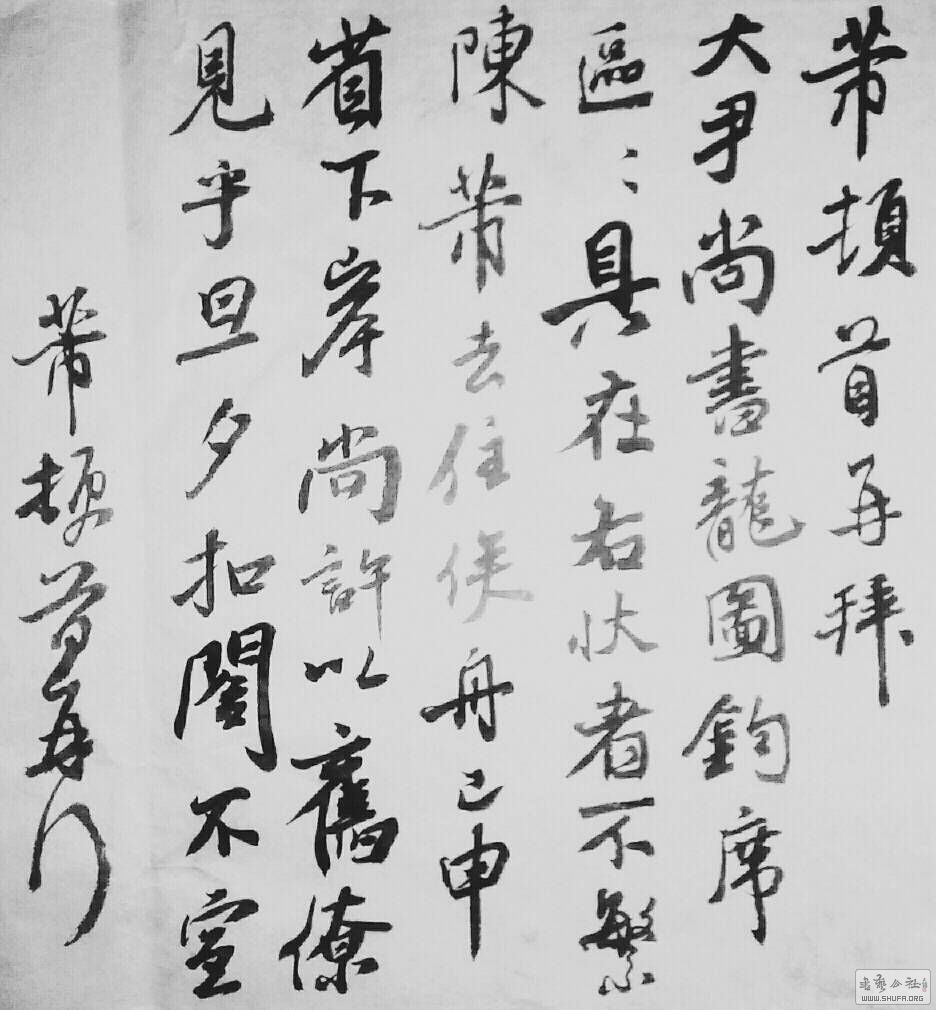 芾頓首再拜
大尹尚書龍圖鈞席
區〻具在右状者不繁
陳芾去住俟舟已申
省下岸尚許以舊僚
見乎旦夕扣閤不宣
芾頓首再行
書藝公社
WWW.SHUFA.ORG